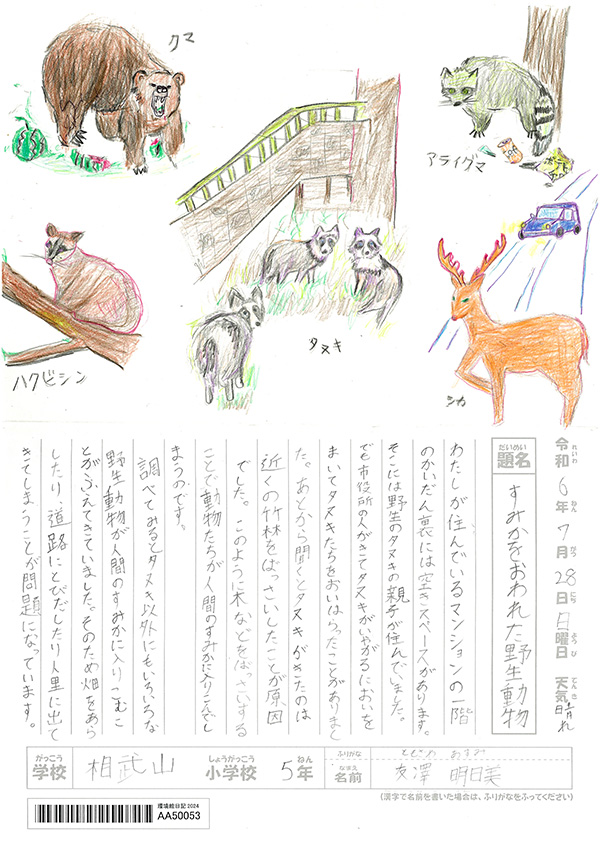 クマ
アライグマ
ポテト
ハクビシン
タヌキ
シカ
令和6年7月28日日曜日 天気晴れ
れいわ ねん がつ にち ようび てんき
だいめい
題名 すみかをおわれた野生動物
わたしが住んでいるマンションの一階
のかいだん裏には空きスペースがあります。
そこには野生のタヌキの親子が住んでいました。
でも市役所の人がきてタヌキがいやがるにおいを
まいてタヌキたちをおいはらったことがありまし
た。あとから聞くとタヌキがきたのは
近くの竹林をばっさいしたことが原因
でした。このように木などをばっさいする
ことで動物たちが人間のすみかに入りこんでし
まうのです。
調べてみるとタヌキ以外にもいろいろな
野生動物が人間のすみかに入りこむこ
とがふえてきていました。そのため畑をあら
したり、道路にとびだしたり人里に出て
きてしまうことが問題になっています。
がっこう しょうがっこう ねん ふりがな
学校 相武山 小学校 5年
なまえ
名前 友澤 明日美
(漢字で名前を書いた場合は、ふりがなをふってください)
環境絵日記 2024
AA50053